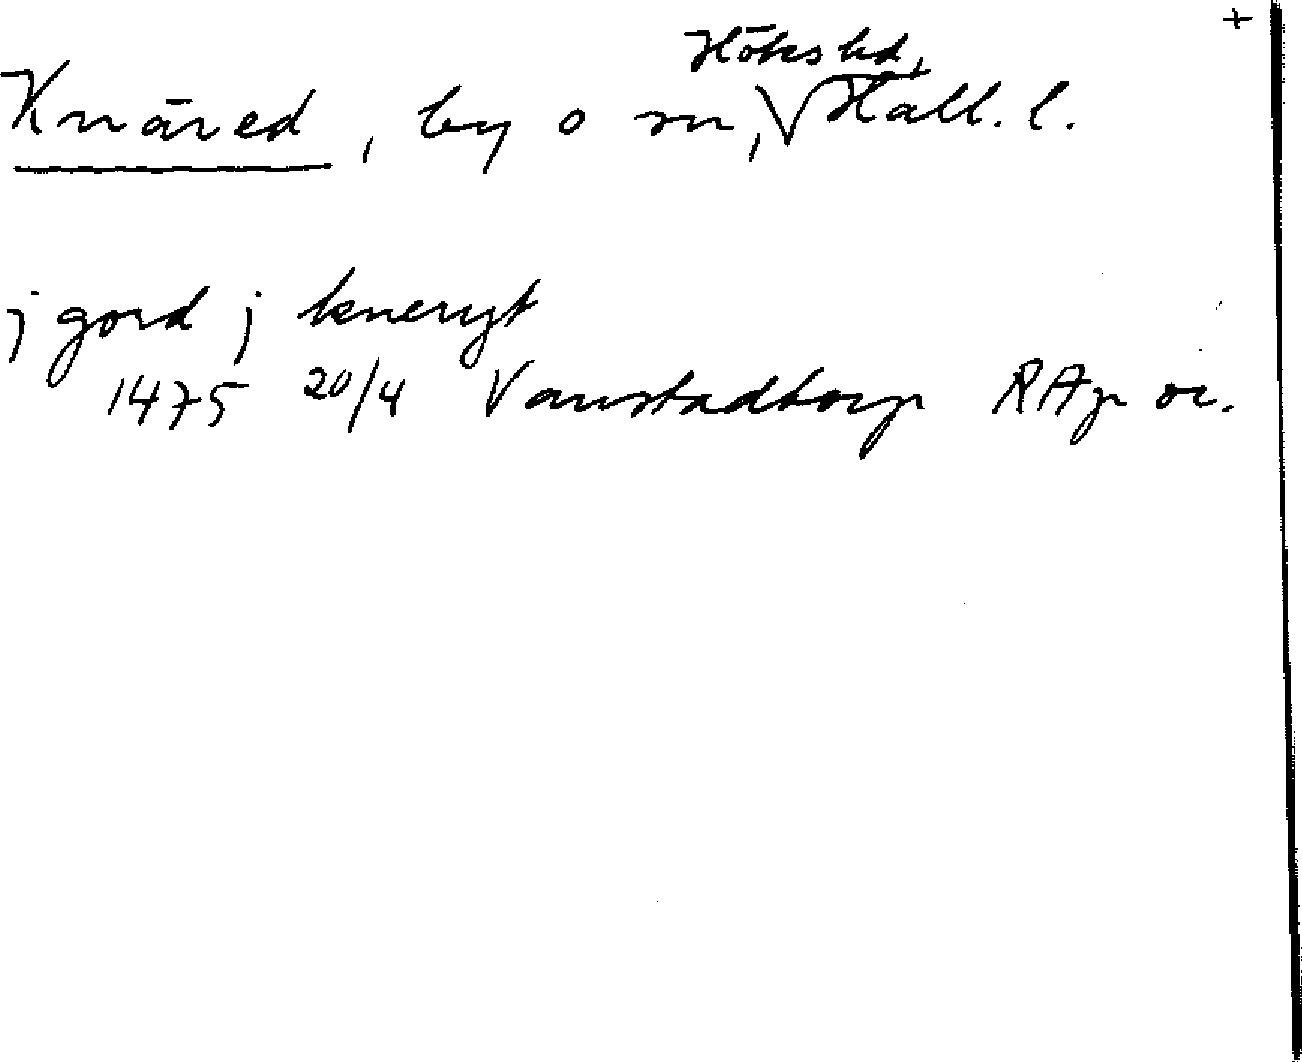 +
Höks hd,
Knäred, by o sn, √ Hall. l.
j gord j kneryt
1475 20/4 Vanstadtorp RAp or.